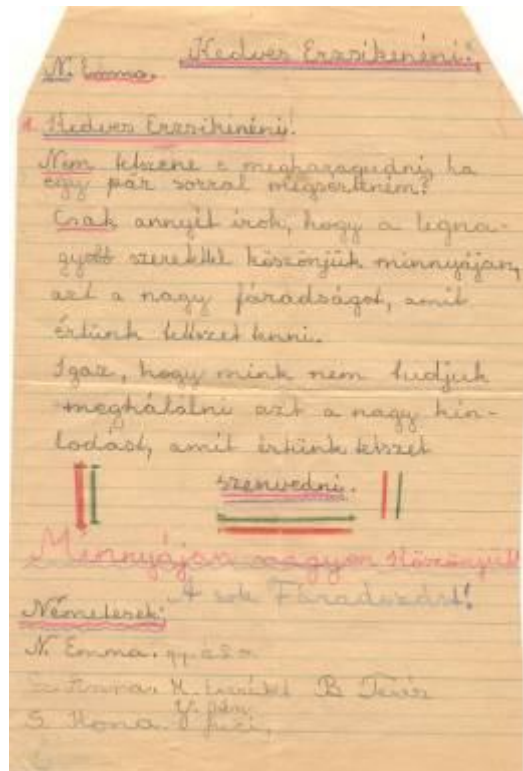 Kedves Erzsikenéni!
N. Emma.
1. Kedves Erzsikenéni!
Nem tetszene e megharagudni, ha
egy pár sorral megsérteném?
Csak annyit irok, hogy a legna-
gyobb szeretettel köszönjük minnyájan,
azt a nagy fáradságot, amit
értünk tetszet tenni.
Igaz, hogy mink nem tudjuk
meghálálni azt a nagy kin-
lodást, amit értünk tetszet
szenvedni.
Minnyájan nagyon Köszönjük
A sok Fáradozást!
Németesek:
N. Emma.
Anna. M. B Teréz
S. Ilona.